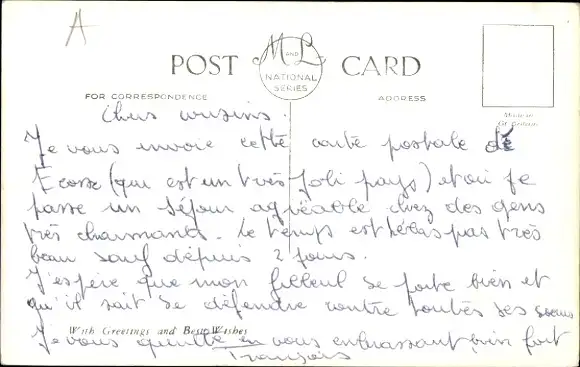 A
POST M AND L CARD
NATIONAL
SERIES
FOR CORRESPONDENCE ADDRESS
Made in
Gt. Britain
Chers cousins.
Je vous envoie cette carte postale dé
Ecosse (qui est un très joli pays) et où je
passe un séjour agréable chez des gens
très charmants. Le temps est hélas pas très
beau sauf dépuis 2 jours.
J'espère que mon filleul se porte bien et
qu'il sait se défendre contre toutes ses soeurs
With Greetings and Best Wishes
Je vous quitte en vous embrassant bien fort
François